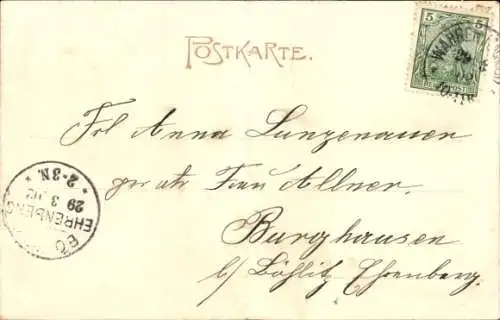 POSTKARTE.
5
WAHREN
Frl Anna Lunzenauer
per adr Frau Allner.
Burghausen
b/ Böhlitz Ehrenberg.
EHRENBERG
29 3
2-3N.